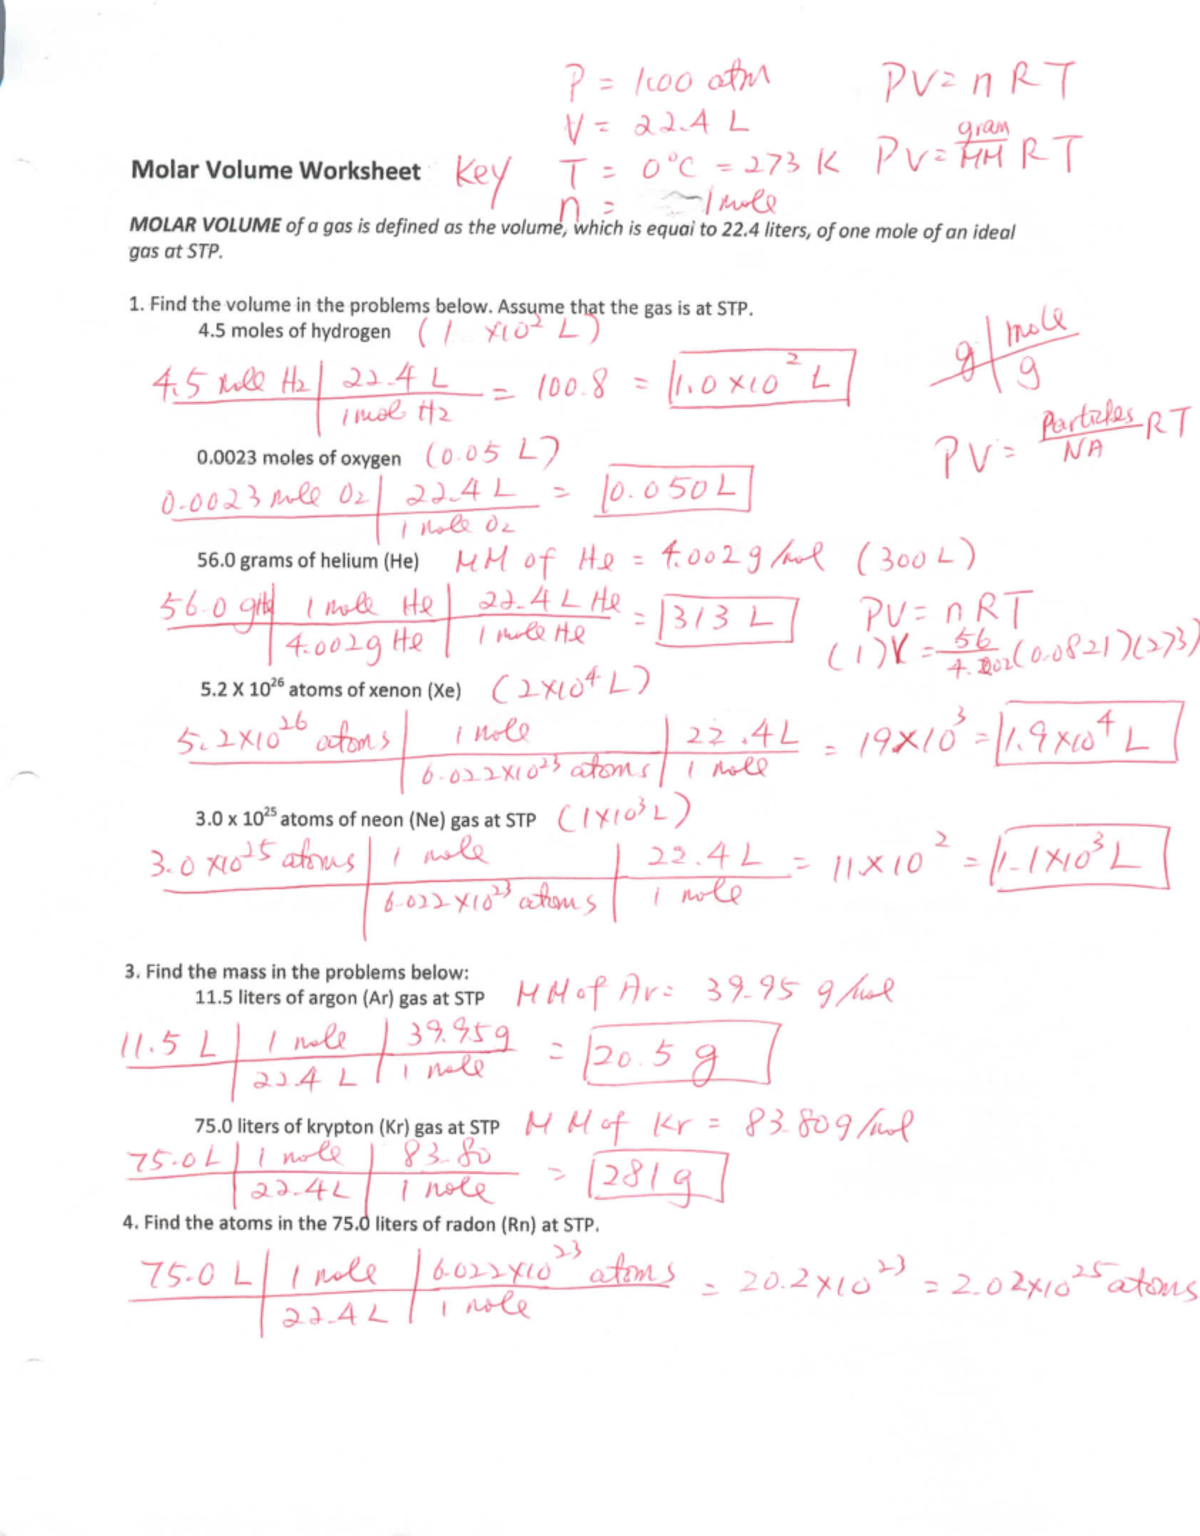 P = 1.00 atm PV = nRT
V = 22.4 L
Molar Volume Worksheet Key T = 0°C = 273 K PV = gram/MM RT
n = 1 mole
MOLAR VOLUME of a gas is defined as the volume, which is equal to 22.4 liters, of one mole of an ideal
gas at STP.
1. Find the volume in the problems below. Assume that the gas is at STP.
4.5 moles of hydrogen (1 x10² L)
g | mole
g
4.5 mole H2 | 22.4 L = 100.8 = 1.0 x10² L
1 mol H2
PV = Particles/NA RT
0.0023 moles of oxygen (0.05 L)
0.0023 mole O2 | 22.4 L = 0.050 L
1 mole O2
56.0 grams of helium (He) MM of He = 4.002 g/mol (300 L)
56.0 g He | 1 mole He | 22.4 L He = 313 L PV = nRT
4.002 g He | 1 mole He (1)V = 56/4.002 (0.0821)(273)
5.2 X 10²⁶ atoms of xenon (Xe) (2x10⁴ L)
5.2x10²⁶ atoms | 1 mole | 22.4 L = 19x10³ = 1.9x10⁴ L
6.022x10²³ atoms | 1 mole
3.0 x 10²⁵ atoms of neon (Ne) gas at STP (1x10³ L)
3.0 x10²⁵ atoms | 1 mole | 22.4 L = 11x10² = 1.1x10³ L
6.022x10²³ atoms | 1 mole
3. Find the mass in the problems below:
11.5 liters of argon (Ar) gas at STP MM of Ar = 39.95 g/mol
11.5 L | 1 mole | 39.95g = 20.5 g
22.4 L | 1 mole
75.0 liters of krypton (Kr) gas at STP MM of Kr = 83.80g/mol
75.0 L | 1 mole | 83.80 = 281 g
22.4 L | 1 mole
4. Find the atoms in the 75.0 liters of radon (Rn) at STP.
75.0 L | 1 mole | 6.022x10²³ atoms = 20.2x10²³ = 2.02x10²⁵ atoms
22.4 L | 1 mole